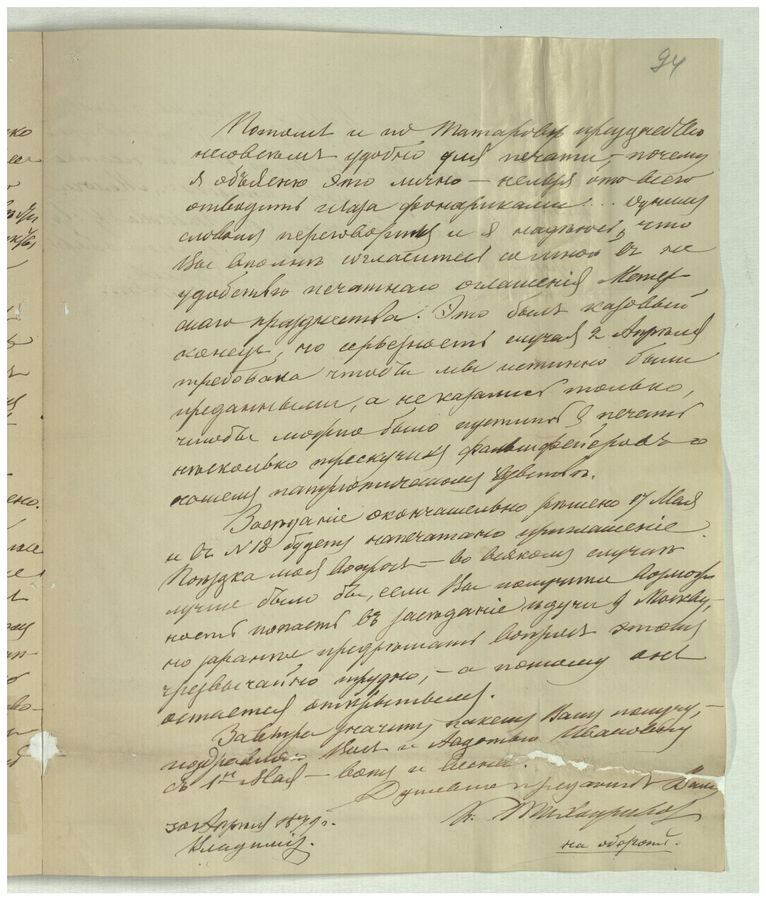 94
Потомъ и по Татаровѣ празднество
неловкимъ удобно для печати, – почему
я объясню это лично – нельзя ото всего
отводить глаза фонариками!... Однимъ
словомъ переговоримъ и я надѣюсь, что
Вы вполнѣ согласитесь со мной въ не
удобствѣ печатнаго оглашенія
празднества. Это былъ казовый
конецъ, но серьезность случая 2 Апрѣля
требовала чтобы мы истинно были
преданными, а не казались только,
чтобы можно было пустить въ печать
нѣсколько трескучихъ фальшфейеровъ о
нашемъ патріотическомъ чувствѣ.
Засѣданіе окончательно рѣшено 17 Мая
и въ № 18 будетъ напечатано приглашеніе.
Поѣздка моя вопросъ – во всякомъ случаѣ
лучше было бы, если Вы получите возмож
ность попасть въ засѣданіе идучи въ Москву,
но заранѣе предрѣшать вопросъ этотъ
чрезвычайно трудно, – а потому онъ
остается открытымъ.
Завтра значитъ пакетъ Вашъ получу, –
поздравляю Васъ и Авдотью Ивановну
съ 1мъ Мая – въ и весна.
Душевно преданный Вамъ
К. Тихонравовъ
30 Апрѣля 1879 г.
Владиміръ.
на оборотѣ.